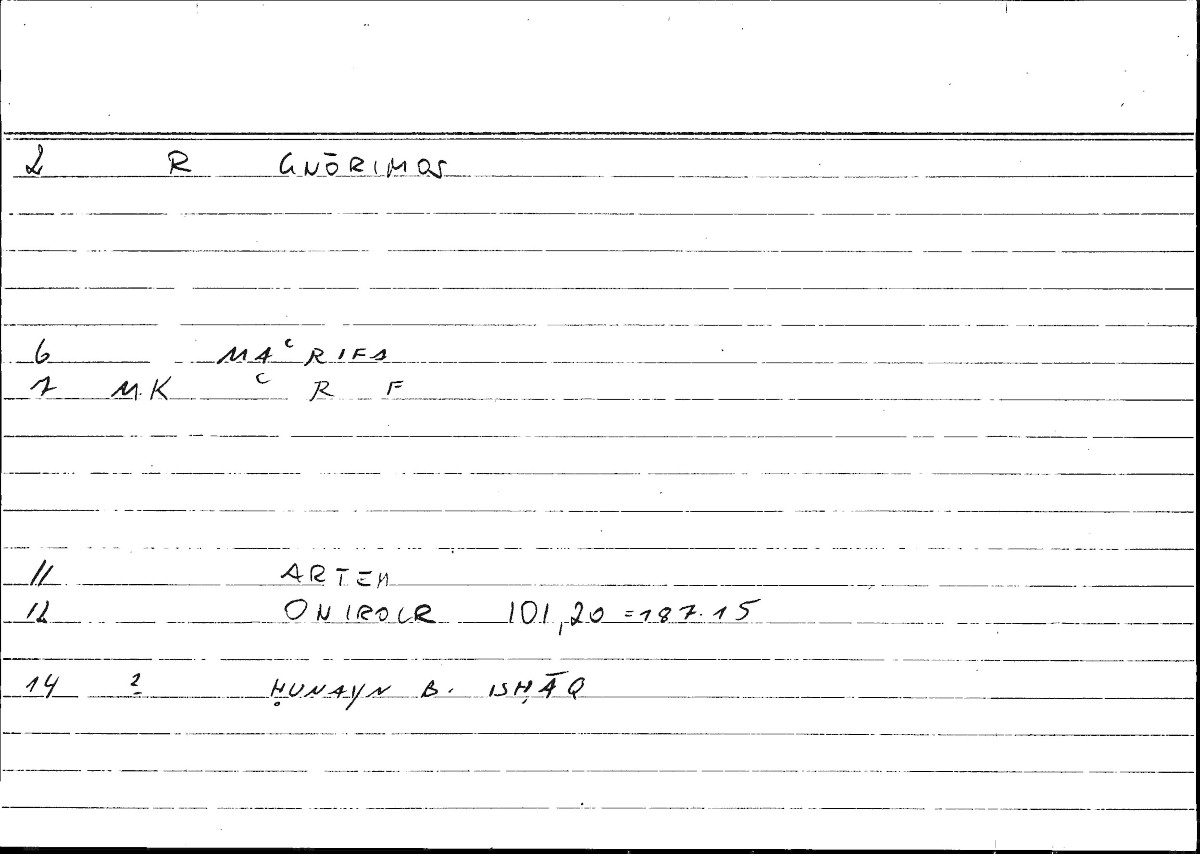 2 R GNŌRIMOS
6 MAʿRIFA
7 M.K ʿ R F
11 ARTEM
12 ONIROCR 101,20 =187.15
14 2 ḤUNAYN B. ISḤĀQ